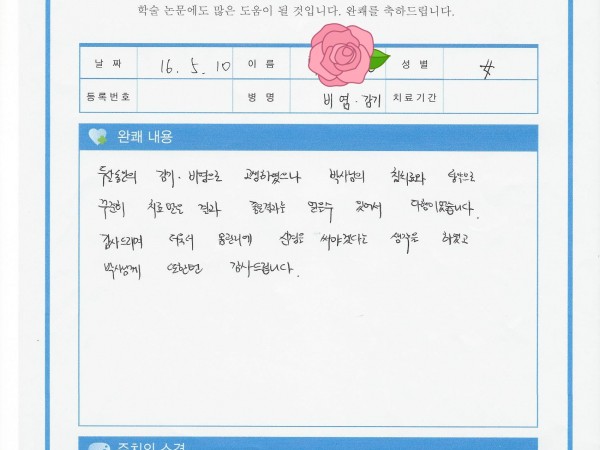 학술 논문에도 많은 도움이 될 것입니다. 완쾌를 축하드립니다.
날 짜 16. 5. 10 이 름 성 별
등록번호 병 명 비염·감기 치료기간
완쾌 내용
감기·비염으로 고생하였으나 박사님의 침치료와
꾸준히 치료 받은 결과 좋은결과를 얻을수 있어서 다행이었습니다.
감사드리며 더욱더 몸관리에 신경을 써야겠다는 생각을 하였고
박사님께 또한번 감사드립니다.
주치의 소견